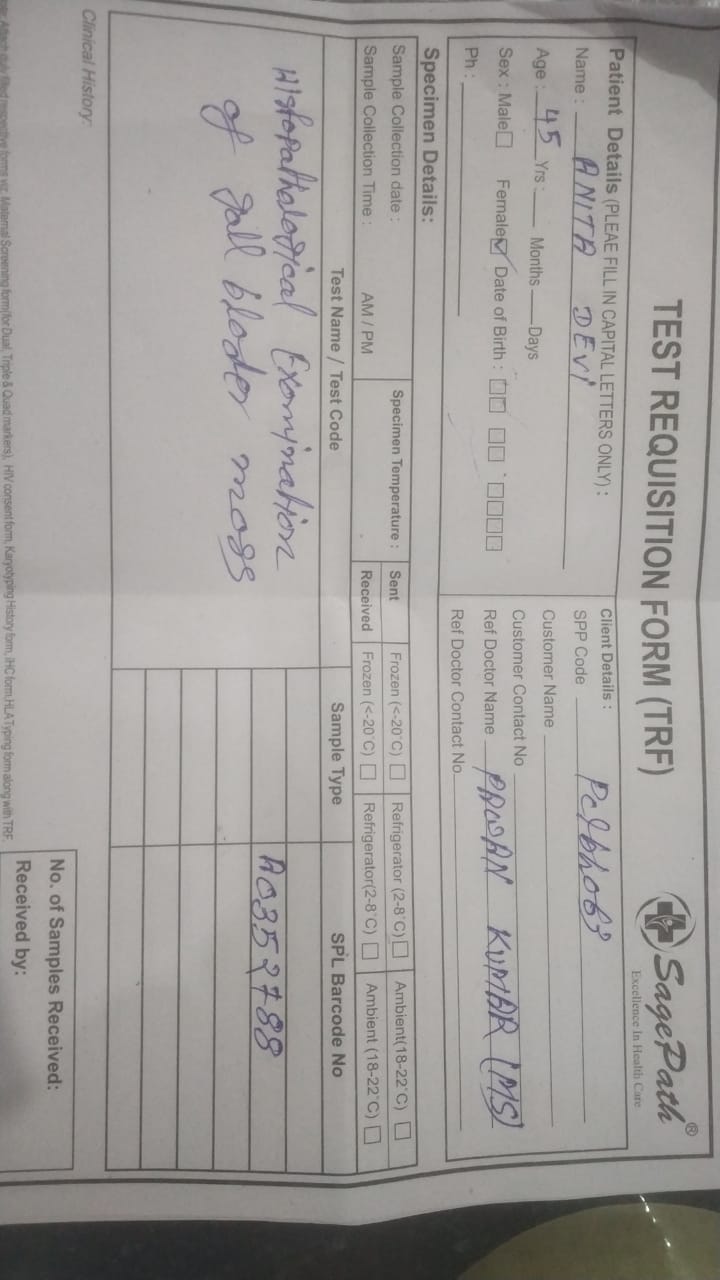 TEST REQUISITION FORM (TRF)
SagePath®
Excellence In Health Care
Patient Details (PLEAE FILL IN CAPITAL LETTERS ONLY) :
Name : ANITA DEVI
Age : 45 Yrs : Months Days
Sex : Male Female Date of Birth :
Ph :
Client Details :
SPP Code
Customer Name
Customer Contact No
Ref Doctor Name PAWAN KUMAR (MS)
Ref Doctor Contact No
Specimen Details:
Sample Collection date :
Sample Collection Time : AM / PM
Specimen Temperature :
Sent Frozen (<-20°C) Refrigerator (2-8°C) Ambient(18-22°C)
Received Frozen (<-20°C) Refrigerator(2-8°C) Ambient (18-22°C)
Test Name / Test Code Sample Type SPL Barcode No
Histopathological Examination A0352788
of gall blader mass
Clinical History:
Attach duly filled respective forms viz. Maternal Screening form(for Dual, Triple & Quad markers), HIV consent form, Karyotyping History form, IHC form, HLA Typing form along with TRF.
No. of Samples Received:
Received by: